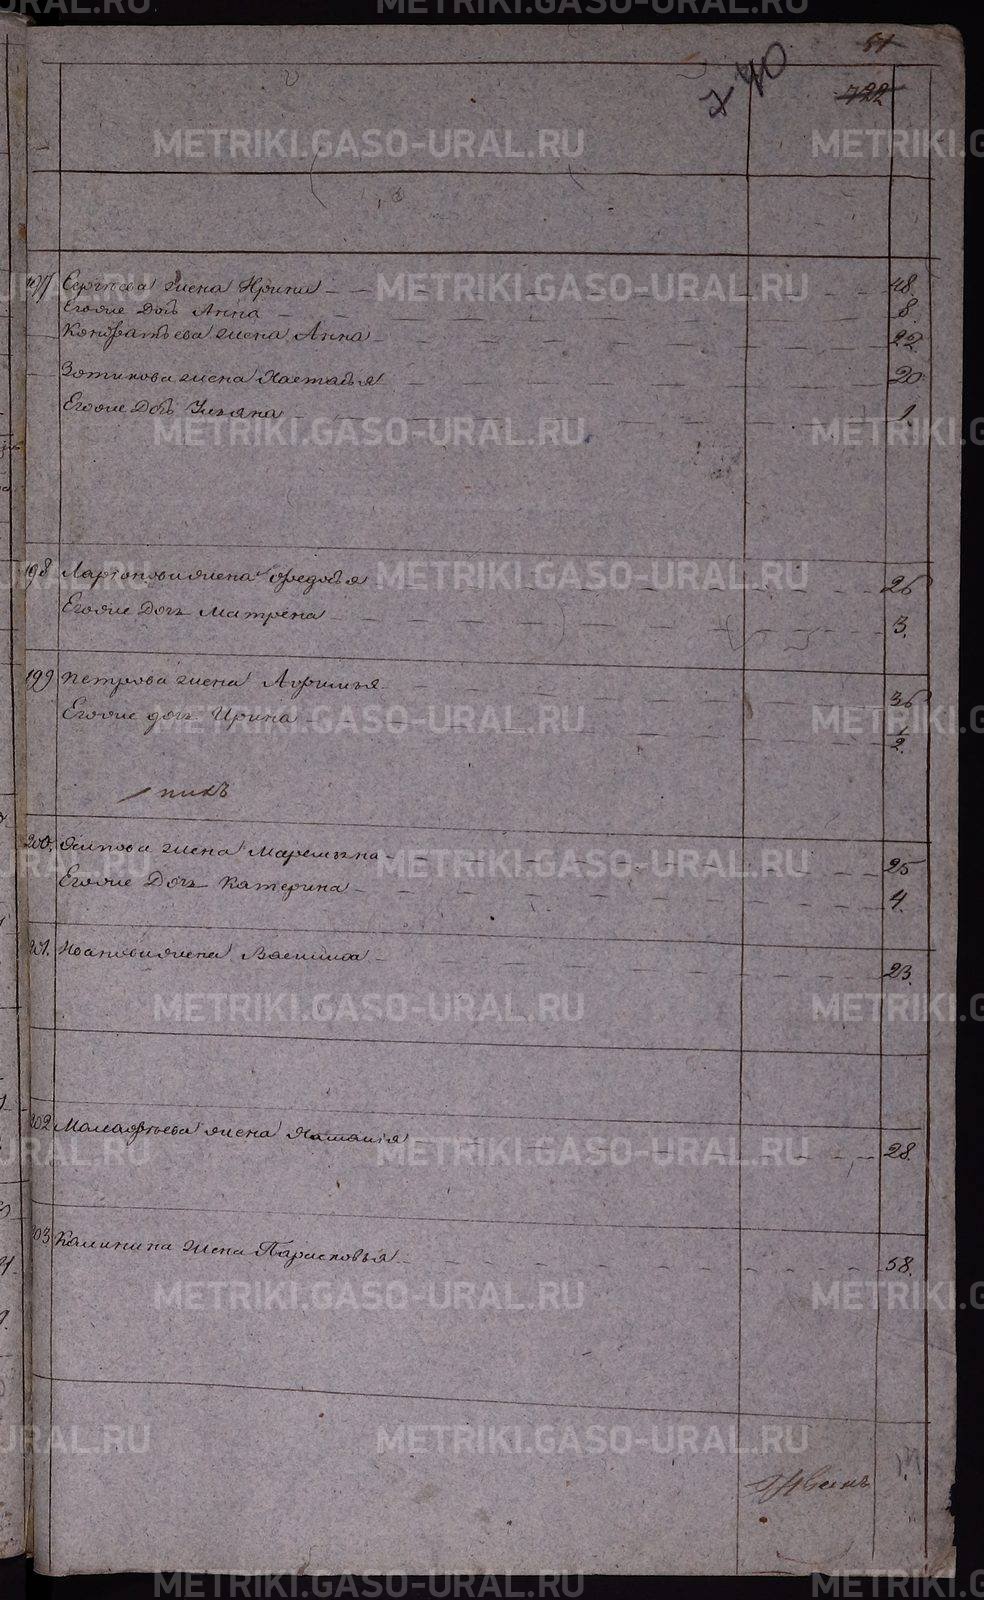 METRIKI.GASO-URAL.RU
51
740
722
197 Сергѣева жена Ирина 48.
Егоже Дочь Анна 8.
Кондратьева жена Анна 22
Зотикова жена Настасья 20
Егоже Дочь Ульяна 1.
198 Ларіонова жена Ѳедосья 26
Егоже Дочь Матрена 3.
199 Петрова жена Афимья 36
Егоже дочь Ирина 1/2
200. Осипова жена Маремьяна 25
Егоже Дочь Катерина 4.
201. Иванова жена Василиса 23.
202 Мамонтьева жена Наталія 28.
203 Калинина жена Парасковья 58.